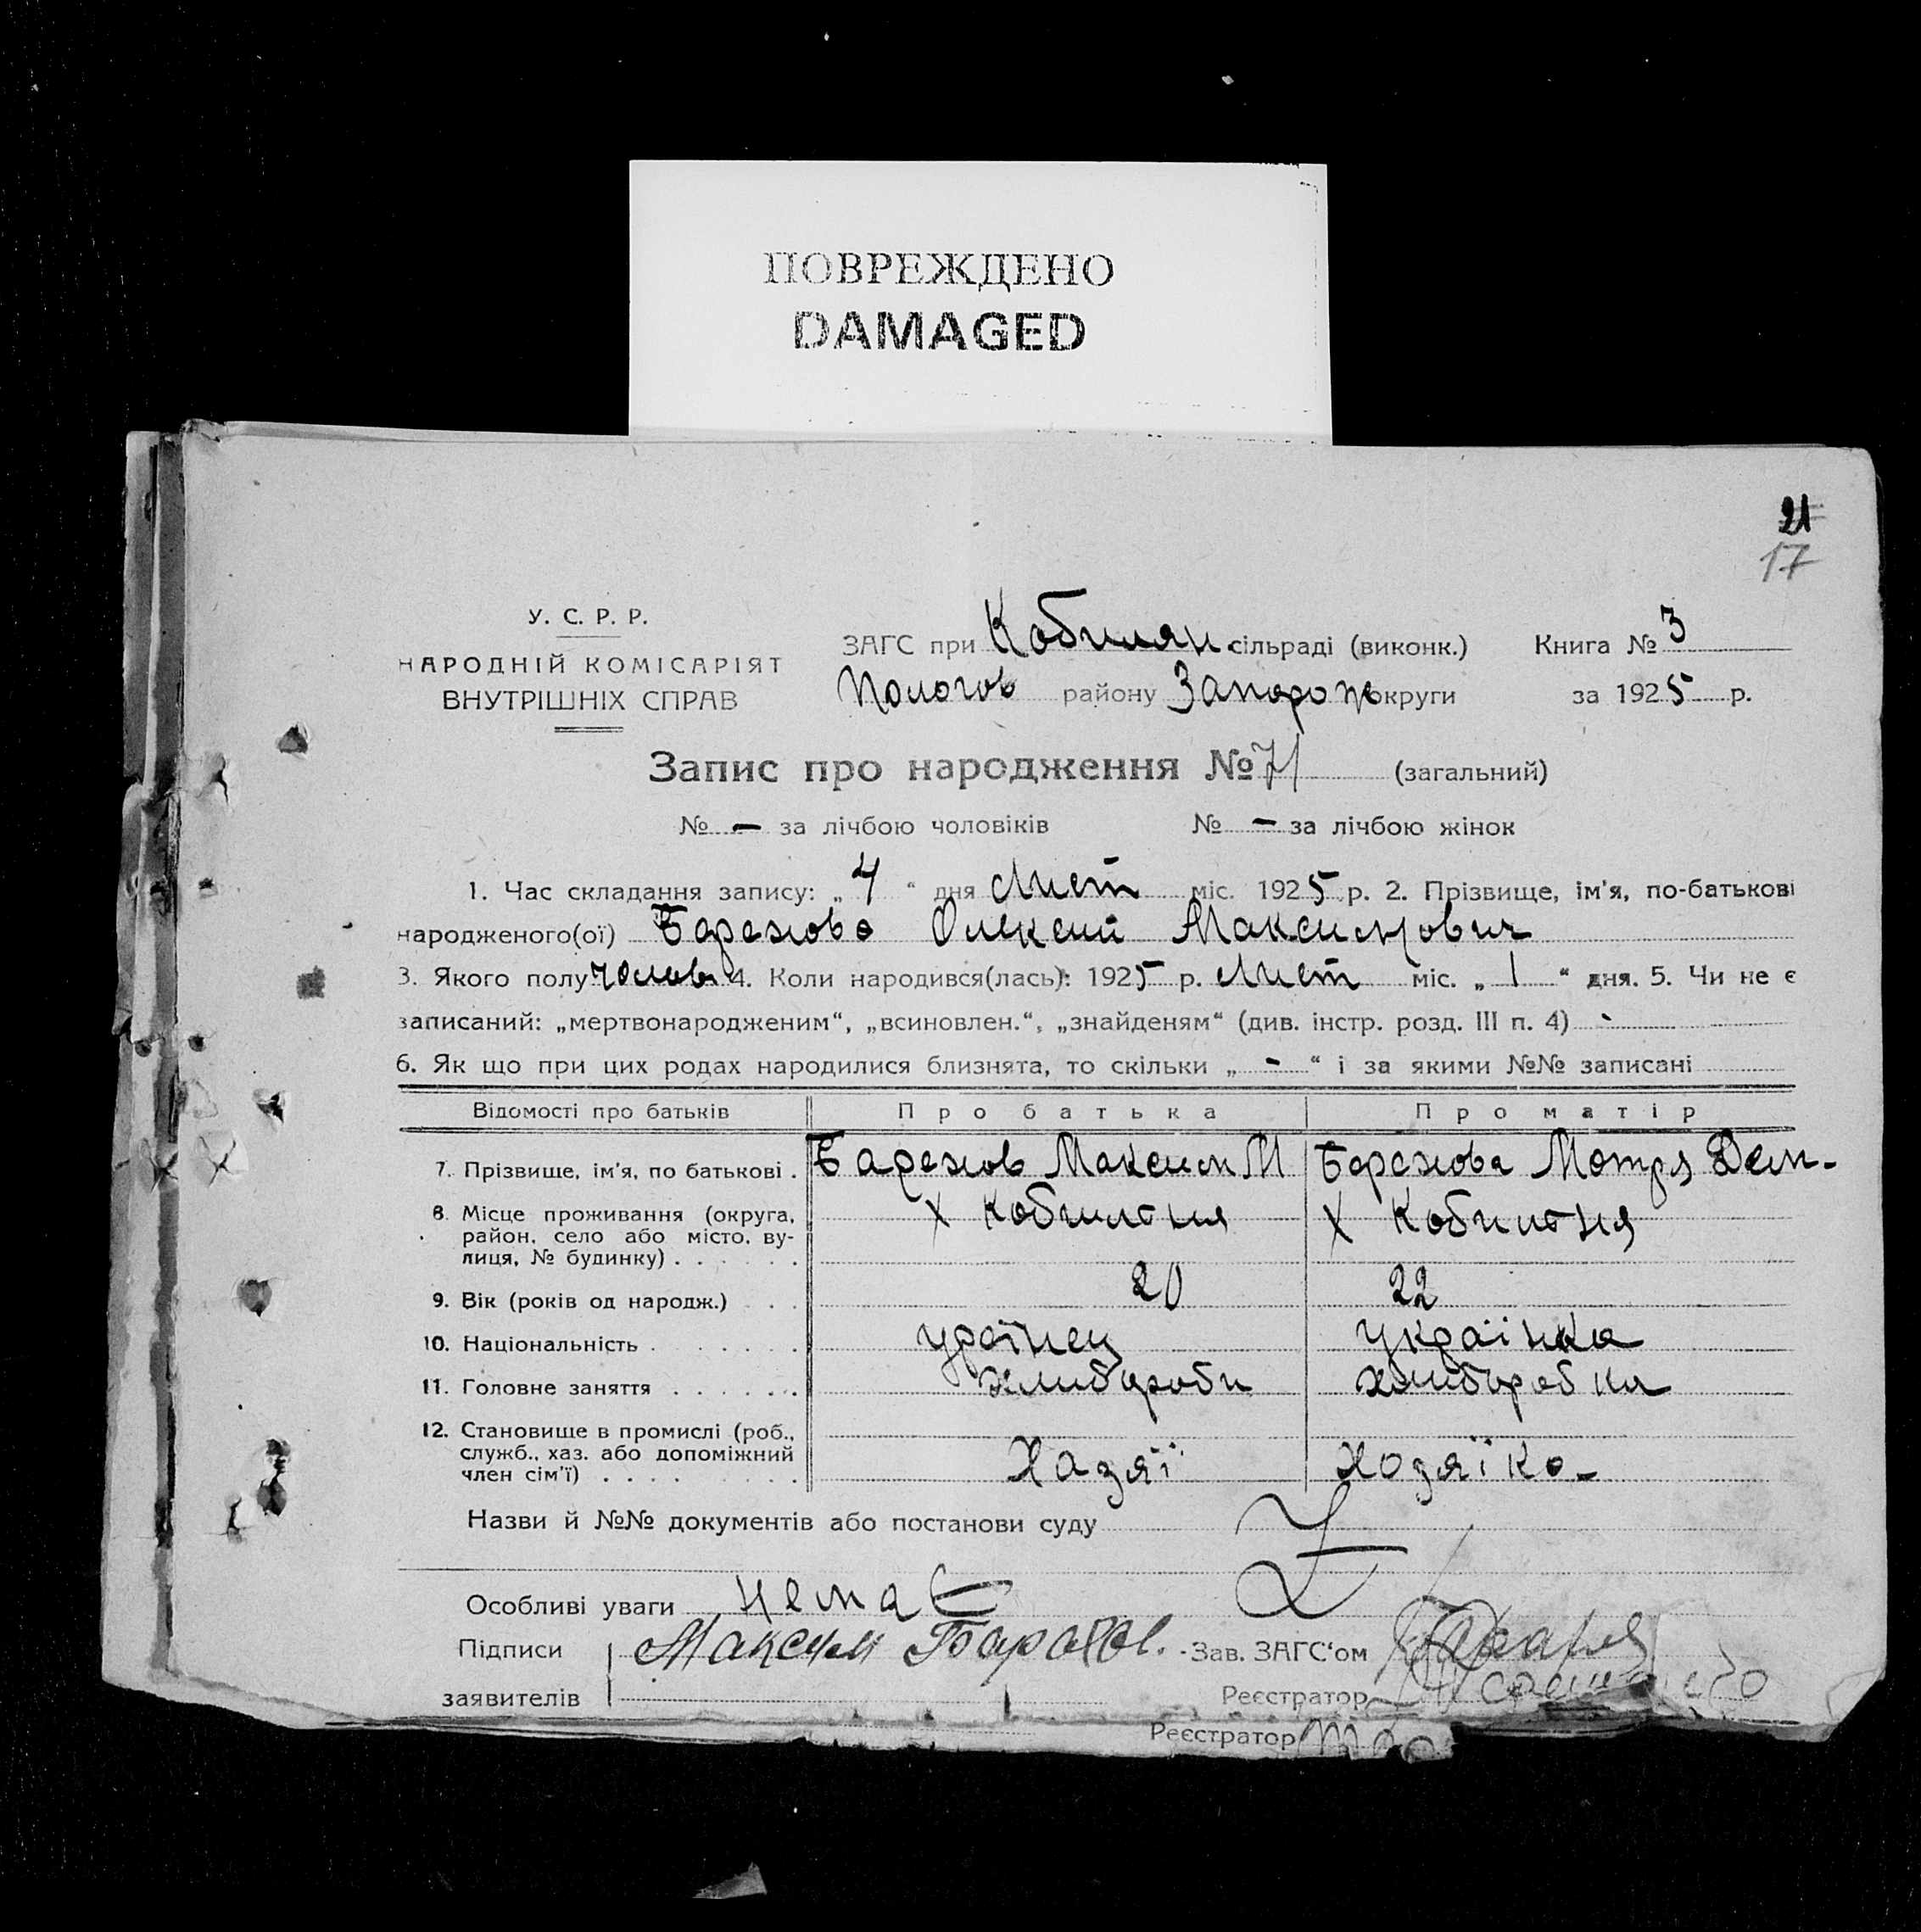 ПОВРЕЖДЕНО
DAMAGED
21
17
У. С. Р. Р.
НАРОДНІЙ КОМІСАРІЯТ
ВНУТРІШНІХ СПРАВ
ЗАГС при Кобилян. сільраді (виконк.) Книга № 3
Пологов району Запорож округи за 1925 р.
Запис про народження № 71 (загальний)
№ — за лічбою чоловіків № — за лічбою жінок
1. Час складання запису: „ 4 “ дня Лист міс. 1925 р. 2. Прізвище, ім'я, по-батькові
народженого(ої) Олексий Максимович
3. Якого полу чолов 4. Коли народився(лась): 1925 р. Лист міс. „ 1 “ дня. 5. Чи не є
записаний: „мертвонародженим“, „всиновлен.“, „знайденям“ (див. інстр. розд. III п. 4) -
6. Як що при цих родах народилися близнята, то скільки „ - “ і за якими №№ записані
Відомості про батьків Про батька Про матір
7. Прізвище, ім'я, по батькові . Максим М Мотря Дем-
8. Місце проживання (округа, х х
район, село або місто, ву-
лиця, № будинку) . . . . . .
9. Вік (років од народж.) . . 20 22
10. Національність . . . . . . . українец українка
11. Головне заняття . . . . . . хлибороби хлиборобка
12. Становище в промислі (роб.,
служб., хаз. або допоміжний Хазяї Хозяїка-
член сім'ї) . . . . . . . .
Назви й №№ документів або постанови суду
Особливі уваги нема
Підписи Максим Зав. ЗАГС'ом
заявителів Реєстратор
Реєстратор